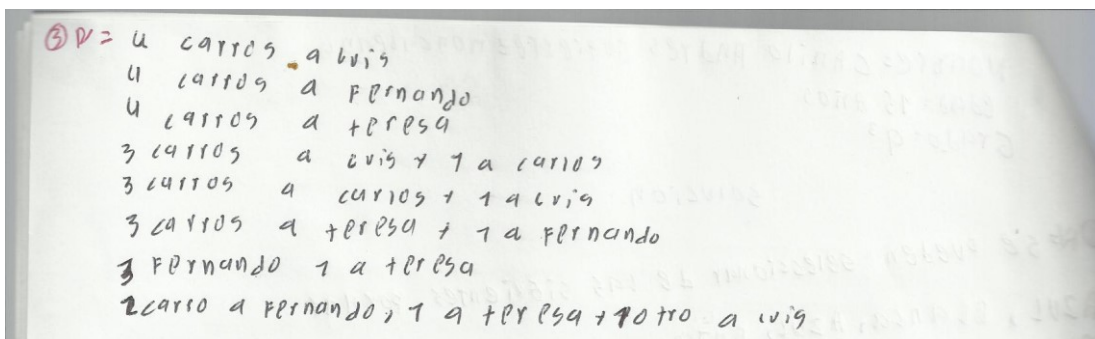 ③ R/= 4 carros a luis
4 carros a Fernando
4 carros a teresa
3 carros a luis y 1 a carlos
3 carros a carlos y 1 a luis
3 carros a teresa y 1 a Fernando
3 Fernando 1 a teresa
2 carro a Fernando, 1 a teresa y 1 otro a luis